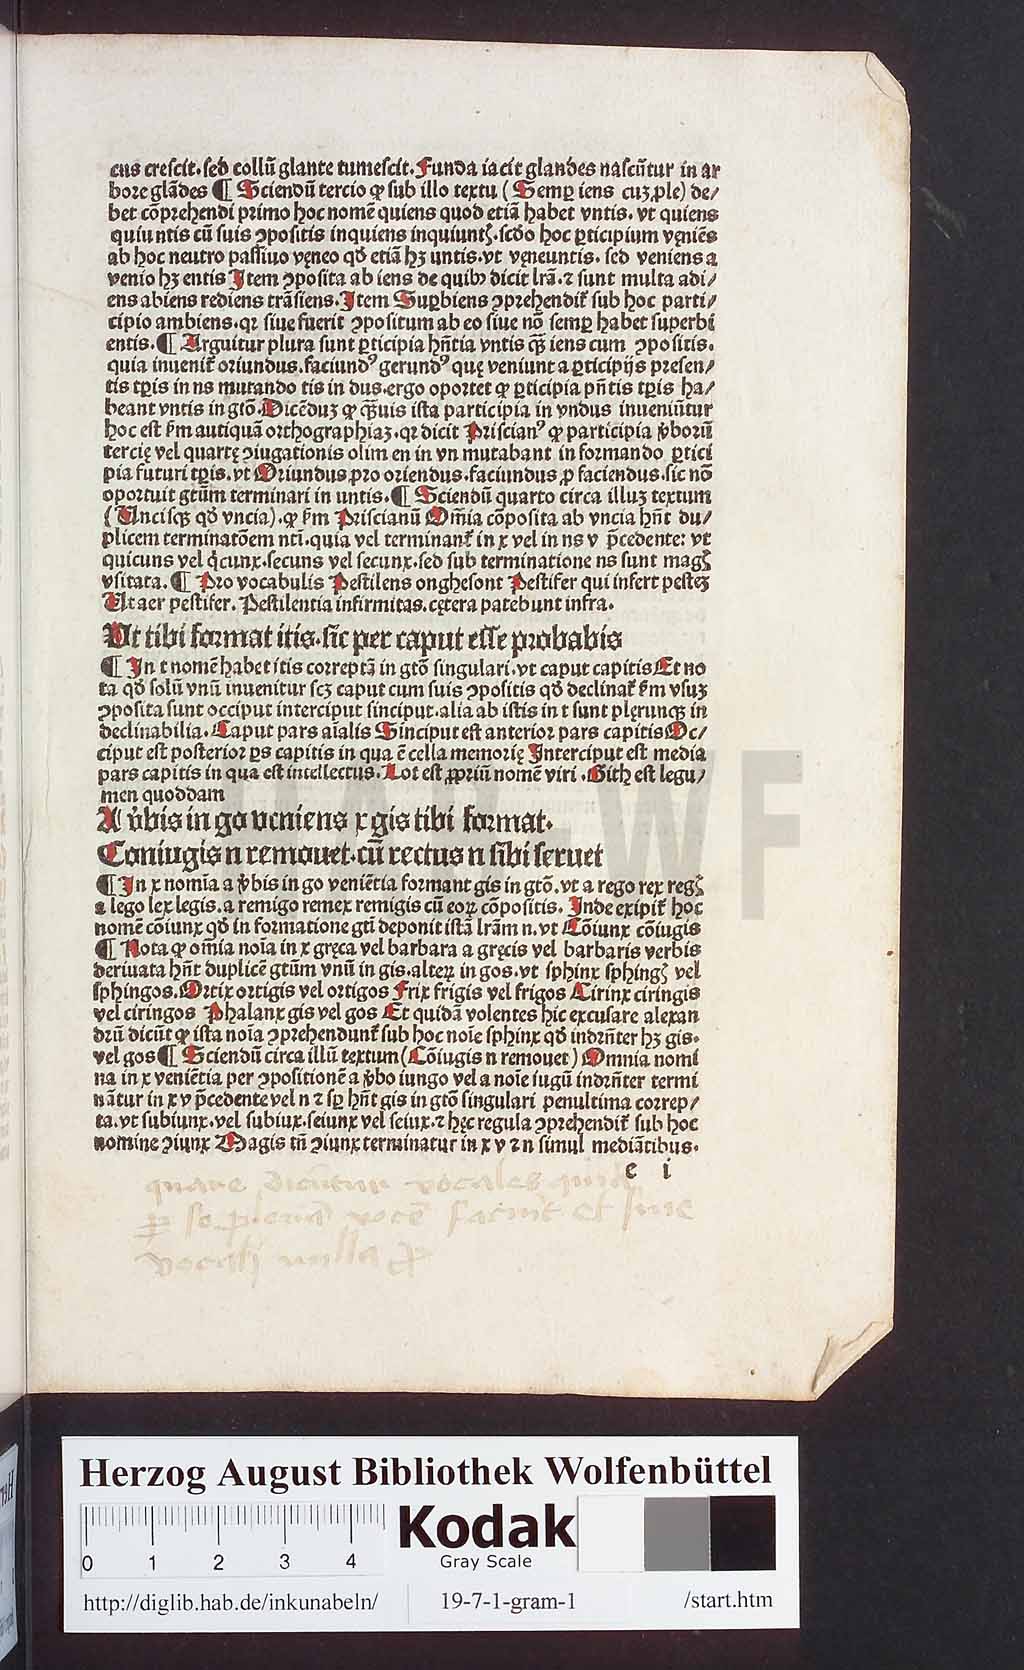 cus crescit. sed collũ glante tumescit. Funda iacit glandes nascũtur in ar
bore glãdes ¶ Sciendũ tercio ꝙ sub illo textu (Semꝑ iens cuꝫ ꝓle) de/
bet cõprehendi primo hoc nomẽ quiens quod etiã habet vntis. vt quiens
quiuntis cũ suis ꝯpositis inquiens inquiuntꝭ. scďo hoc ꝑticipium vęniẽs
ab hoc neutro passiuo vęneo qď etiã hꝫ untis. vt vęneuntis. sed veniens a
venio hꝫ entis Item ꝯposita ab iens de quibꝰ dicit lrã. ⁊ sunt multa adi/
ens abiens rediens trãsiens. Item Suꝑbiens ꝯprehendit᷒ sub hoc parti/
cipio ambiens. qꝛ siue fuerit ꝯpositum ab eo siue nõ semꝑ habet superbi
entis. ¶ Arguitur plura sunt ꝑticipia hñtia vntis q̃ꝫ iens cum ꝯpositis.
quia inuenit᷒ oriundus. faciundꝰ gerundꝰ quę veniunt a ꝑticipijs presen/
tis tꝑis in ns mutando tis in dus. ergo oportet ꝙ ꝑticipia pñtis tꝑis ha/
beant vntis in gtõ. Dicẽduꝫ ꝙ q̃ꝫuis ista participia in vndus inueniũtur
hoc est ẜm autiquã orthographiaꝫ. qꝛ dicit Priscianꝰ ꝙ participia v̾borũ
tercię vel quartę ꝯiugationis olim en in vn mutabant in formando ꝑtici
pia futuri tꝑis. vt Oriundus pro oriendus. faciundus ꝓ faciendus. sic nõ
oportuit gtũm terminari in untis. ¶ Sciendũ quarto circa illuꝫ textum
(Uncisqꝫ qď vncia). ꝙ ẜm Priscianũ Om̃ia cõposita ab vncia hñt du/
plicem terminatõem ntĩ. quia vel terminant᷒ in x vel in ns v p̃cedente: vt
quicuns vel q̇cunx. secuns vel secunx. sed sub terminatione ns sunt magꝭ
vsitata. ¶ Pro vocabulis Pestilens onghesont Pestifer qui infert pesteꝫ
Ut aer pestifer. Pestilentia infirmitas. cętera patebunt infra.
Ut tibi format itis. sic per caput esse probabis
¶ In t nomẽ habet itis correptã in gtõ singulari. vt caput capitis Et no
ta qď solũ vnũ inuenitur scꝫ caput cum suis ꝯpositis qď declinat᷒ ẜm vsuꝫ
ꝯposita sunt occiput interciput sinciput. alia ab istis in t sunt plęrunqꝫ in
declinabilia. Caput pars aĩalis Sinciput est anterior pars capitis Oc/
ciput est posterior ꝑs capitis in qua ẽ cella memorię Interciput est media
pars capitis in qua est intellectus. Lot est ꝓpriũ nomẽ viri. Gith est legu/
men quoddam
A v̾bis in go veniens x gis tibi format.
Coniugis n remouet. cũ rectus n sibi seruet
¶ In x nomĩa a v̾bis in go veniẽtia formant gis in gtõ. vt a rego rex regꝭ
a lego lex legis. a remigo remex remigis cũ eoꝝ cõpositis. Inde exipit᷒ hoc
nomẽ cõiunx qď in formatione gtĩ deponit istã lrãm n. vt Cõiunx cõiugis
¶ Nota ꝙ om̃ia noĩa in x gręca vel barbara a gręcis vel barbaris verbis
deriuata hñt duplicẽ gtũm vnũ in gis. alteꝝ in gos. vt sphinx sphingꝭ vel
sphingos. Ortix ortigis vel ortigos Frix frigis vel frigos Cirinx ciringis
vel ciringos Phalanx gis vel gos Et quidã volentes hic excusare alexan
drũ dicũt ꝙ ista noĩa ꝯprehendunt᷒ sub hoc noĩe sphinx qď indrñter hꝫ gis.
vel gos ¶ Sciendũ circa illũ textum (Cõiugis n remouet) Omnia nomi
na in x veniẽtia per ꝯpositionẽ a v̾bo iungo vel a noĩe iugũ indrñter termi
nãtur in x v p̃cedente vel n ⁊ sꝑ hñt gis in gtõ singulari penultima correp/
ta. vt subiunx. vel subiux. seiunx vel seiux. ⁊ hęc regula ꝯprehendit᷒ sub hoc
nomine ꝯiunx Magis tñ ꝯiunx terminatur in x v ⁊ n simul mediãtibus.
e i
quare dicũtur vocales quia
ꝑ se vocẽ faciũt et sine
vocali nulla
HAB WF
Herzog August Bibliothek Wolfenbüttel
0 1 2 3 4
Kodak
Gray Scale
http://diglib.hab.de/inkunabeln/ 19-7-1-gram-1 /start.htm